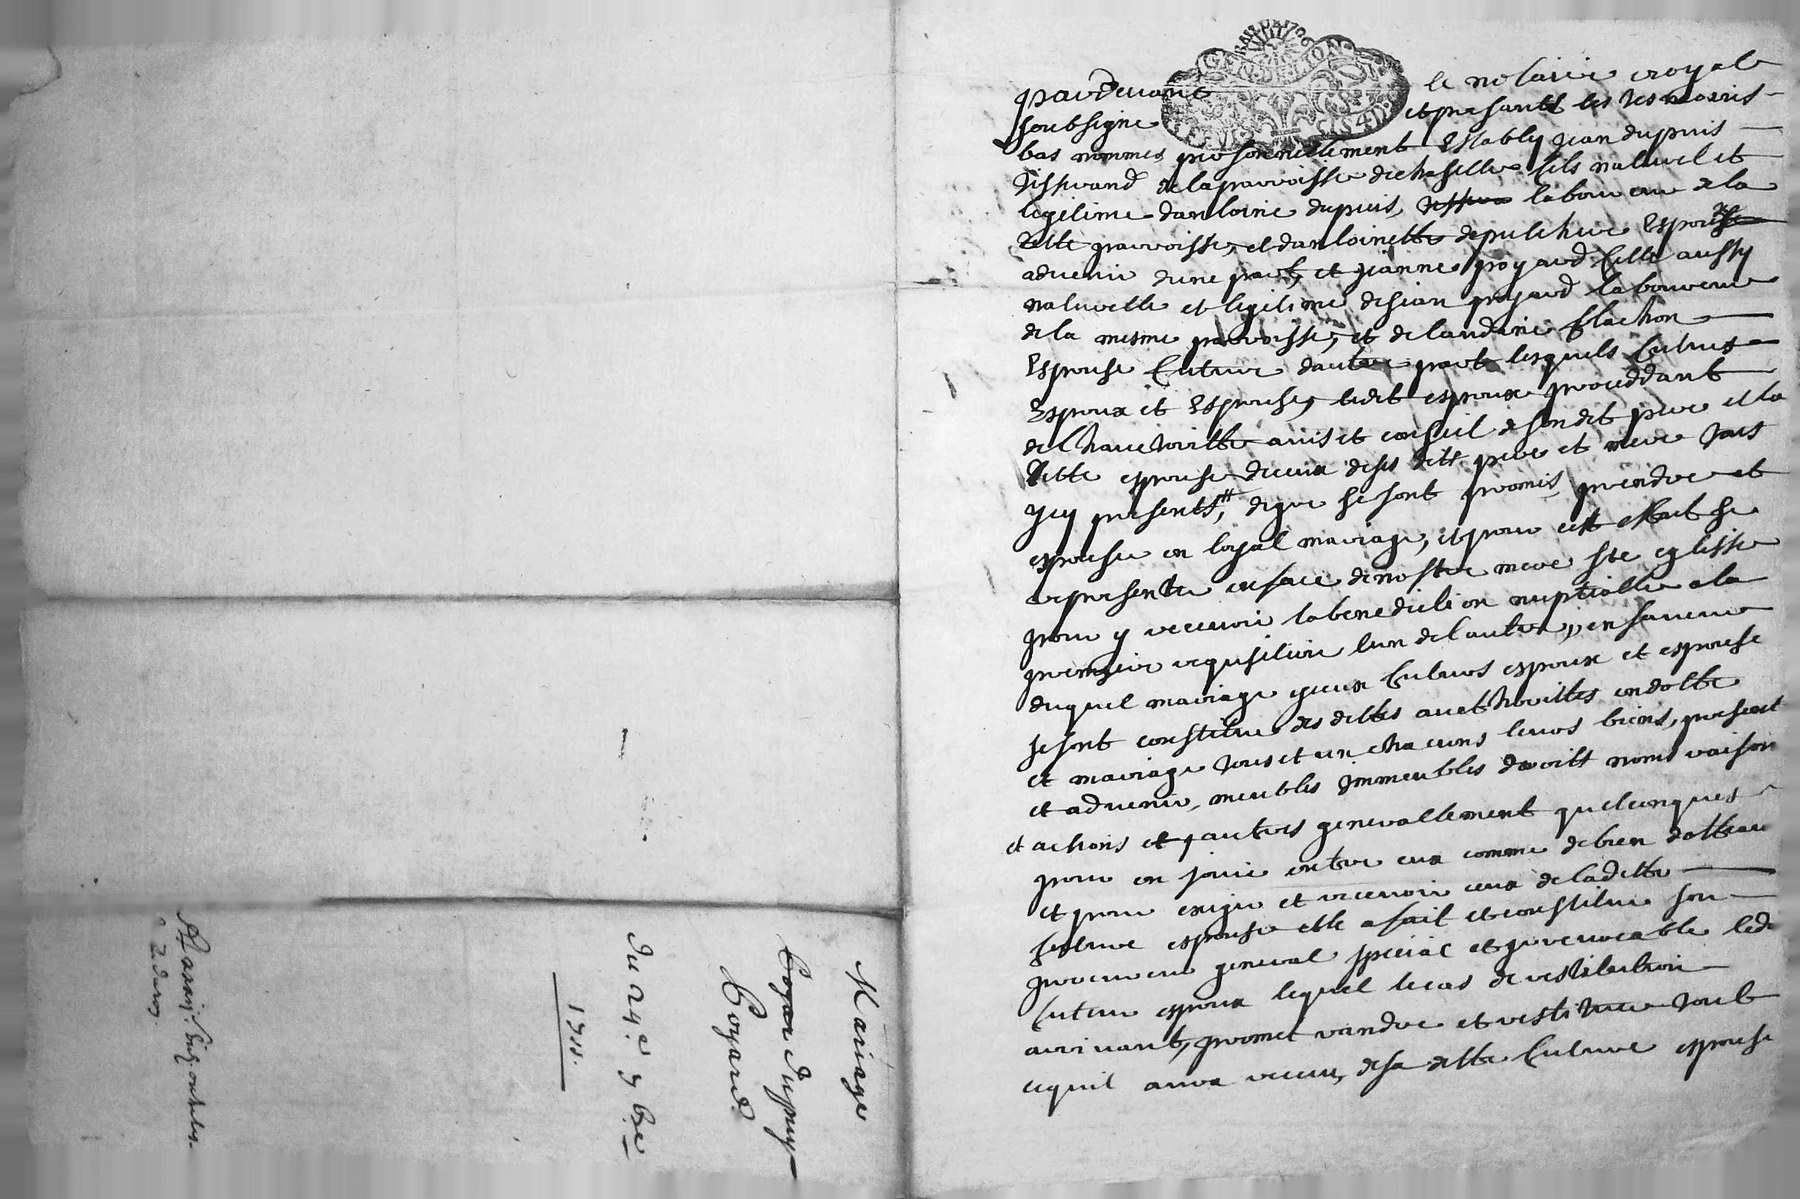 Mariage
Dupuy
Poyard
du 24.e 9bre
1711.
pardevant le notaire royal
soubsigne et presants les tesmoins
bas nommes personnellement estably jean dupuis
tisserand de la parroisse de chaselles fils naturel et
legitime dantoine dupuis, laboureur de la
ditte parroisse, et dantoinette depulchere Espoux
advenir dune part, et jeanne poyard fille aussy
naturelle et legitime de jean poyard laboureur
de la mesme parroisse, et de landrine flachon
Espouse future dautre part lesquels futurs
Espoux et Espouse, ledit espoux proceddant
de lhauctoritte avis et conseil de son dit pere et la
ditte espouse de ceux de ses dits pere et mere tous
icy presents, degre se sont promis prendre et
espouser en loyal mariage, et pour cest effect se
representer en face de nostre mere ste eglisse
pour y recevoir la benediction nuptialle a la
premiere requisition lun de lautre, en faveur
duquel mariage iceux futurs espoux et espouse
se sont constitue des dittes aucthorittes en dotte
et mariage tous et un chacuns leurs biens, present
et advenir, meubles immeubles droits noms raison
et actions et autres generallement quelconques
pour en jouir entre eux comme de bien dottaux
et pour exiger et recevoir ceux de la ditte
future espouse elle a fait et constitue son
procureur general special et irrevocable ledi
futur espoux lequel le cas de restitution
arrivant, promet randre et restituer tout
ce quil aura receu, de sa ditte future espouse